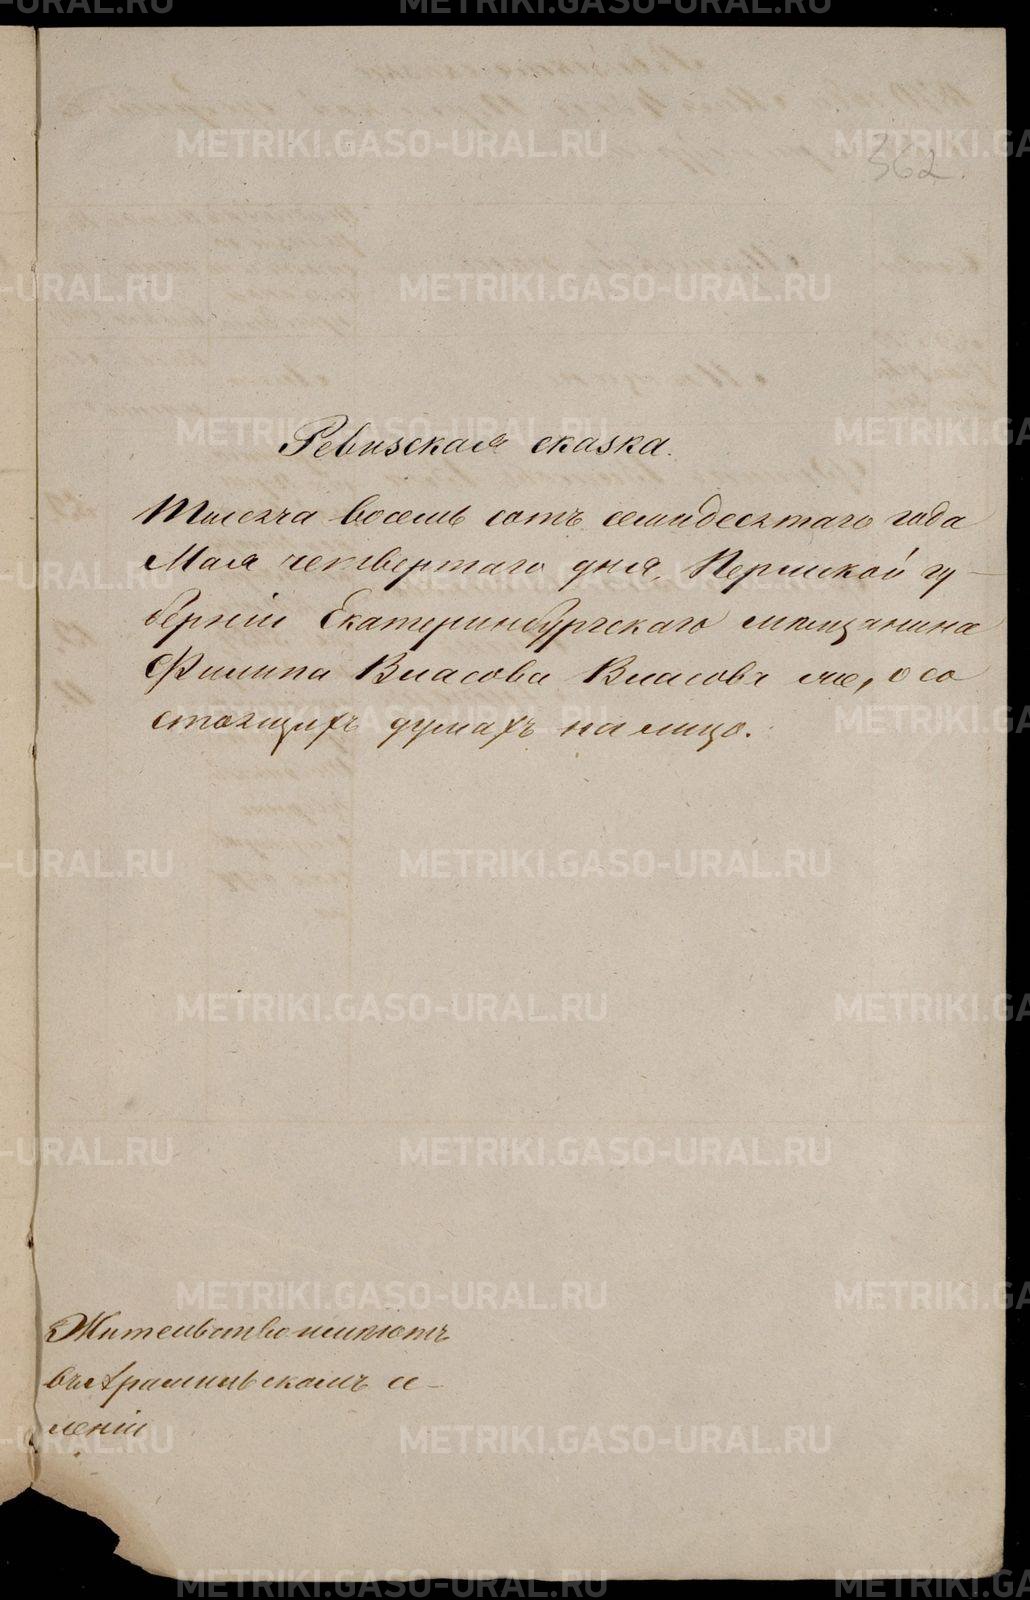 362
Ревизская сказка.
Тысеча восемь сотъ семидесятаго года
Мая четвертаго дня, Пермской гу-
берніи Екатеринбургскаго мещанина
Филипа Власова Власовъ же, о со
стоящихъ душахъ на лицо.
Жительство имеютъ
въ Арамильскомъ се-
леніи
METRIKI.GASO-URAL.RU